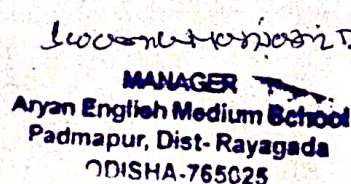 MANAGER
Aryan English Medium School
Padmapur, Dist- Rayagada
ODISHA-765025